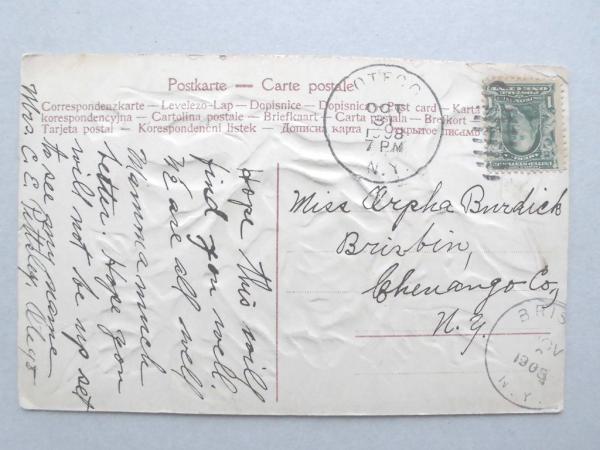 Postkarte — Carte postale
Correspondenzkarte — Levelezo-Lap — Dopisnice — Dopisnica — Post card — Karta
korespondencyjna — Cartolina postale — Briefkaart — Carta postala — Brefkort
Tarjeta postal — Korespondenční listek — Дописна карта — Открытое письмо
OTEGO
OCT
7 P.M.
N.Y.
1
Miss Orpha Burdick
Brisbin,
Chenango Co,
N.Y.
BRIS
OV
N.Y.
Hope this will
find you well.
We are all well
Mamma much
better. Hope you
will not be up set
to see my name
Mrs C E